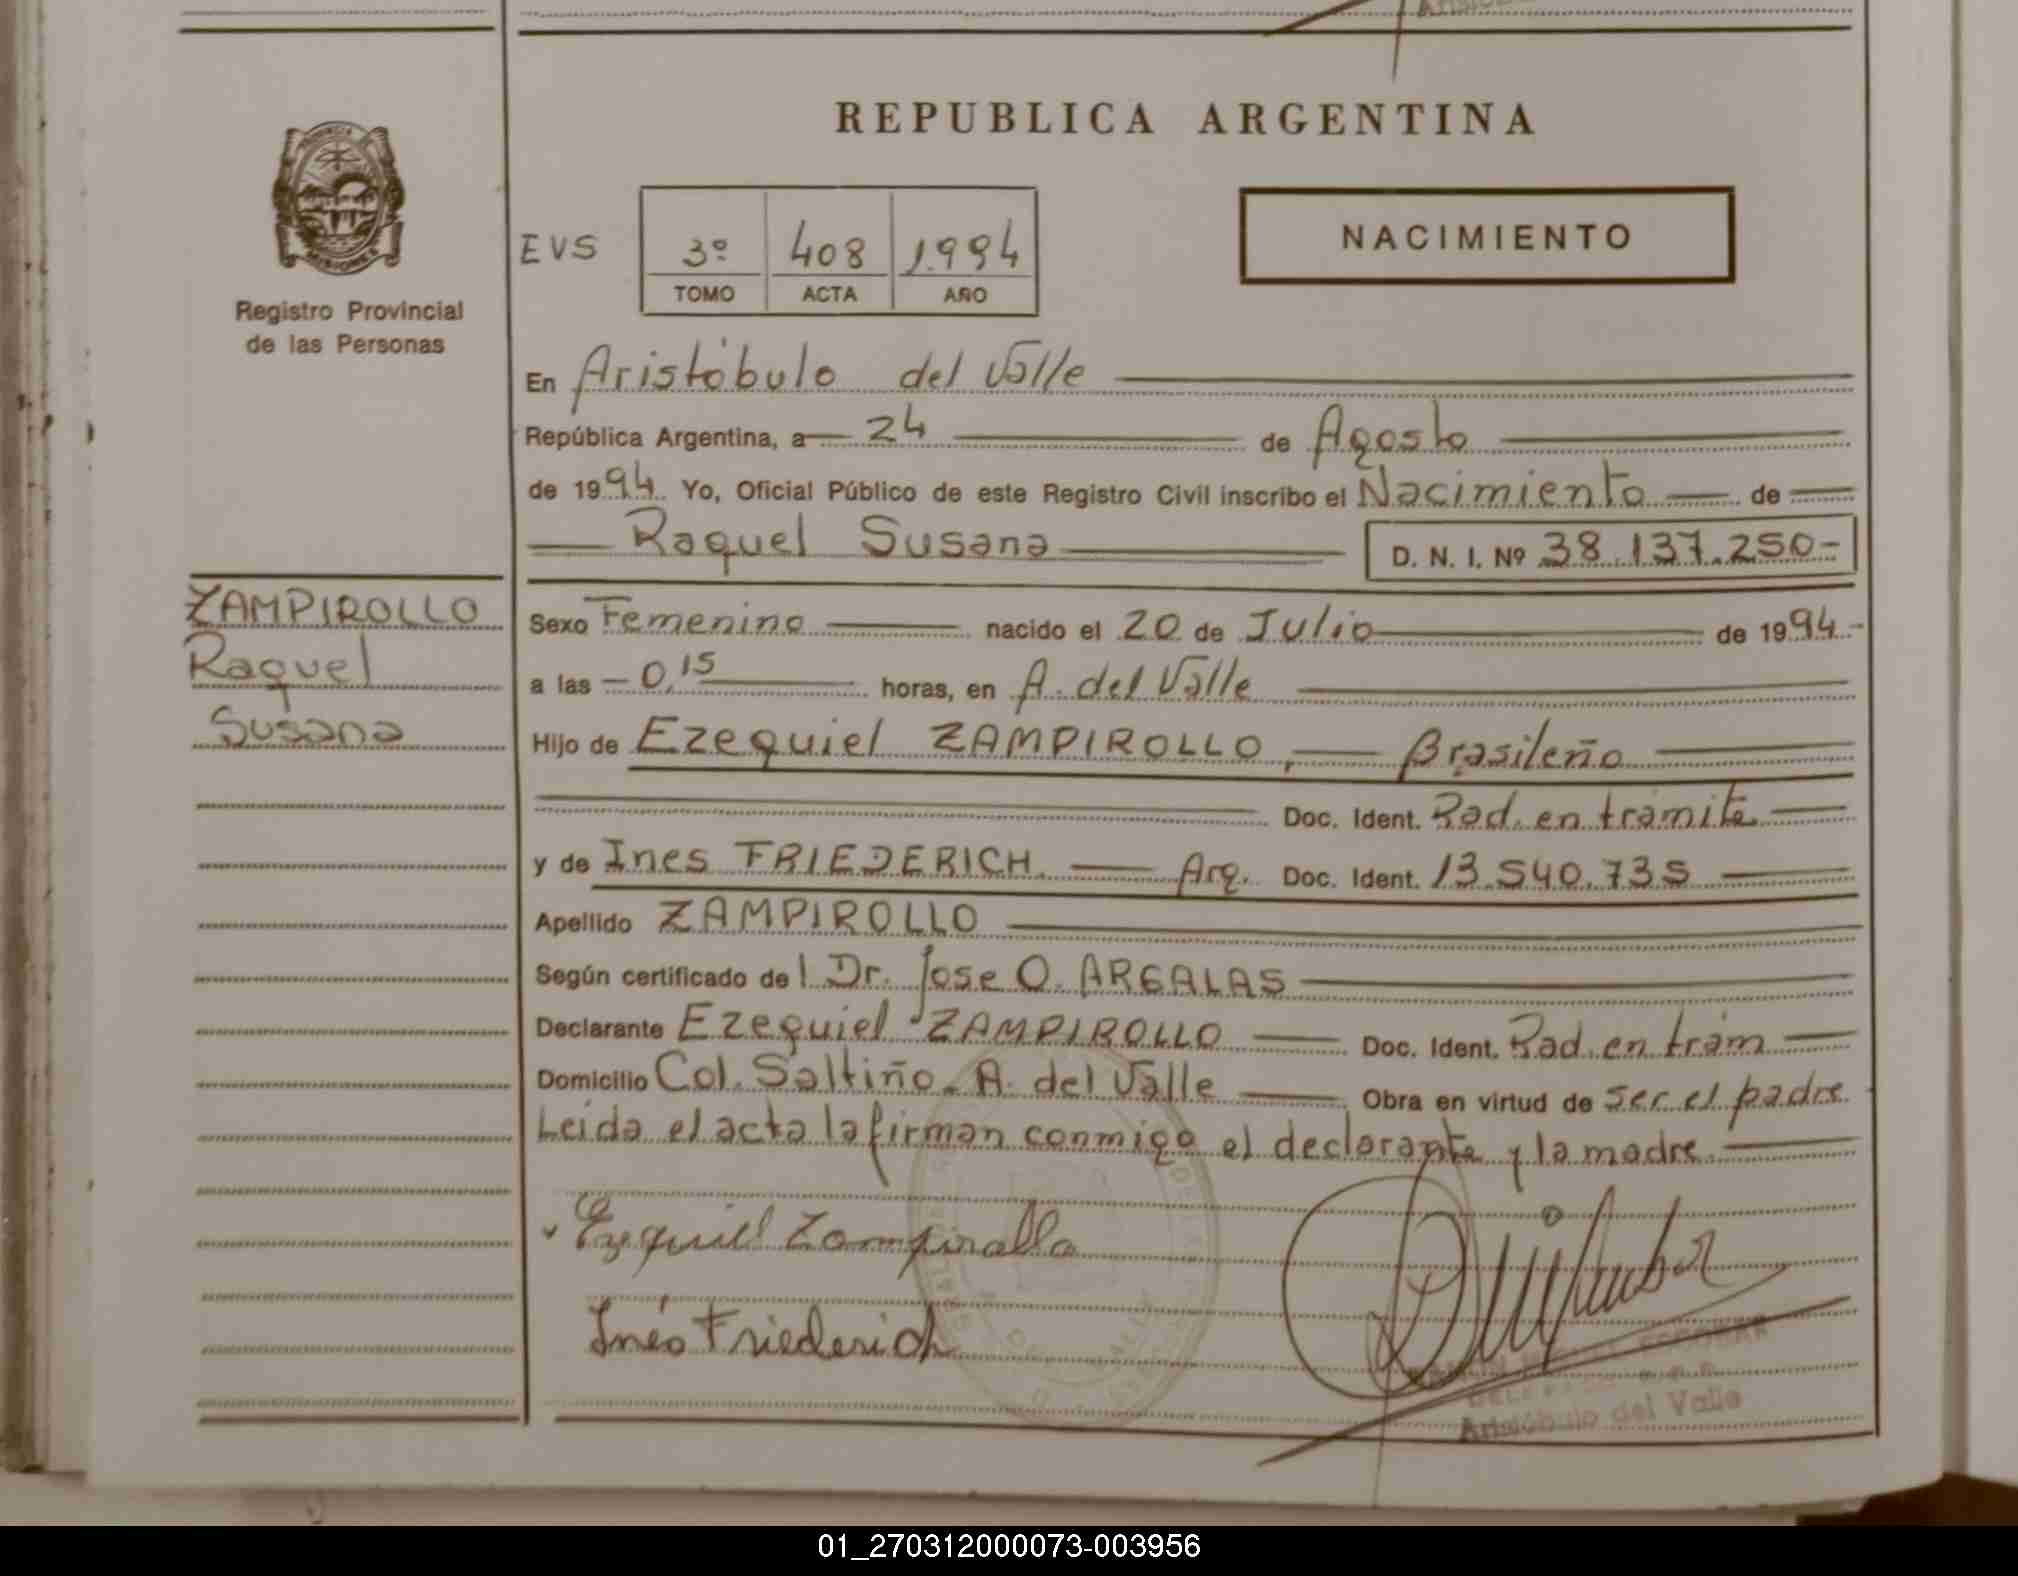 REPUBLICA ARGENTINA
PROVINCIA
MISIONES
Registro Provincial
de las Personas
EVS
3º 408 1.994
TOMO ACTA AÑO
NACIMIENTO
En Aristóbulo del Valle
República Argentina, a 24 de Agosto
de 1994. Yo, Oficial Público de este Registro Civil inscribo el Nacimiento de
Raquel Susana D. N. I. Nº 38.137.250-
ZAMPIROLLO
Raquel
Susana
Sexo Femenino nacido el 20 de Julio de 1994.-
a las 0,15 horas, en A. del Valle
Hijo de Ezequiel ZAMPIROLLO, Brasileño
Doc. Ident. Rad. en trámite
y de Ines FRIEDERICH. Arg. Doc. Ident. 13.540.735
Apellido ZAMPIROLLO
Según certificado de l Dr. Jose O. ARGALAS
Declarante Ezequiel ZAMPIROLLO Doc. Ident. Rad. en trám
Domicilio Col. Saltiño - A. del Valle Obra en virtud de ser el padre
Leida el acta la firman conmigo el declarante y la madre.
Ezequiel Zampirollo
Inés Friederich
ESCOBAR
Aristóbulo del Valle
01_270312000073-003956